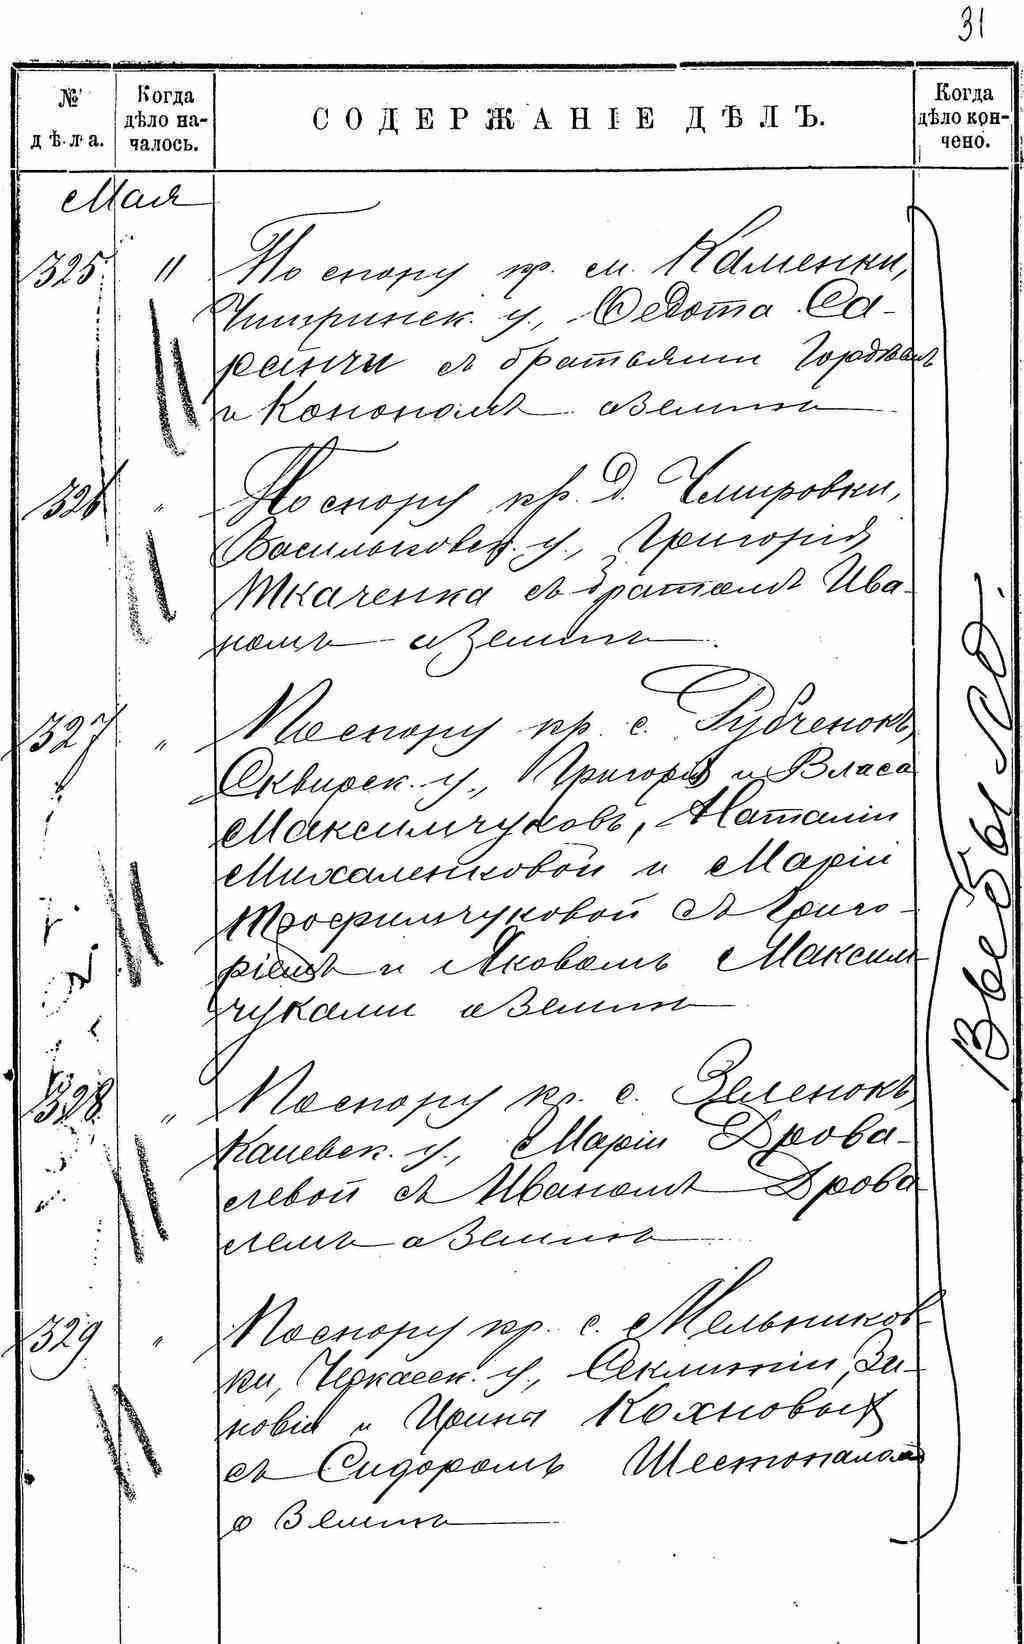 31
№ дѣла.
Когда дѣло началось.
СОДЕРЖАНІЕ ДѢЛЪ.
Когда дѣло кончено.
Мая
325 11 По спору кр. м. Каменки,
Чигиринск. у., Ѳедота Са-
ранчи съ братьями Гордѣемъ
и Конономъ о землѣ
326 " По спору кр. д. Чмировки,
Васильковск. у., Григорія
Ткаченка съ братомъ Ива-
номъ о землѣ.
327 " По спору кр. с. Рубченокъ,
Сквирск. у., Григорія и Власа
Максимчуковъ, Наталіи
Михаленковой и Маріи
Трофимчуковой съ Григо-
ріемъ и Яковомъ Максим
чуками о землѣ
328 " По спору кр. с. Зеленокъ,
Каневск. у., Маріи Дрова-
левой съ Иваномъ Дрова
лемъ о землѣ
329 " По спору кр. с. Мельников
ки, Черкасск. у., Секлитіи, Зи-
новія и Ирины Кохновыхъ
съ Сидоромъ Шестопаломъ
о землѣ
Выбыло.